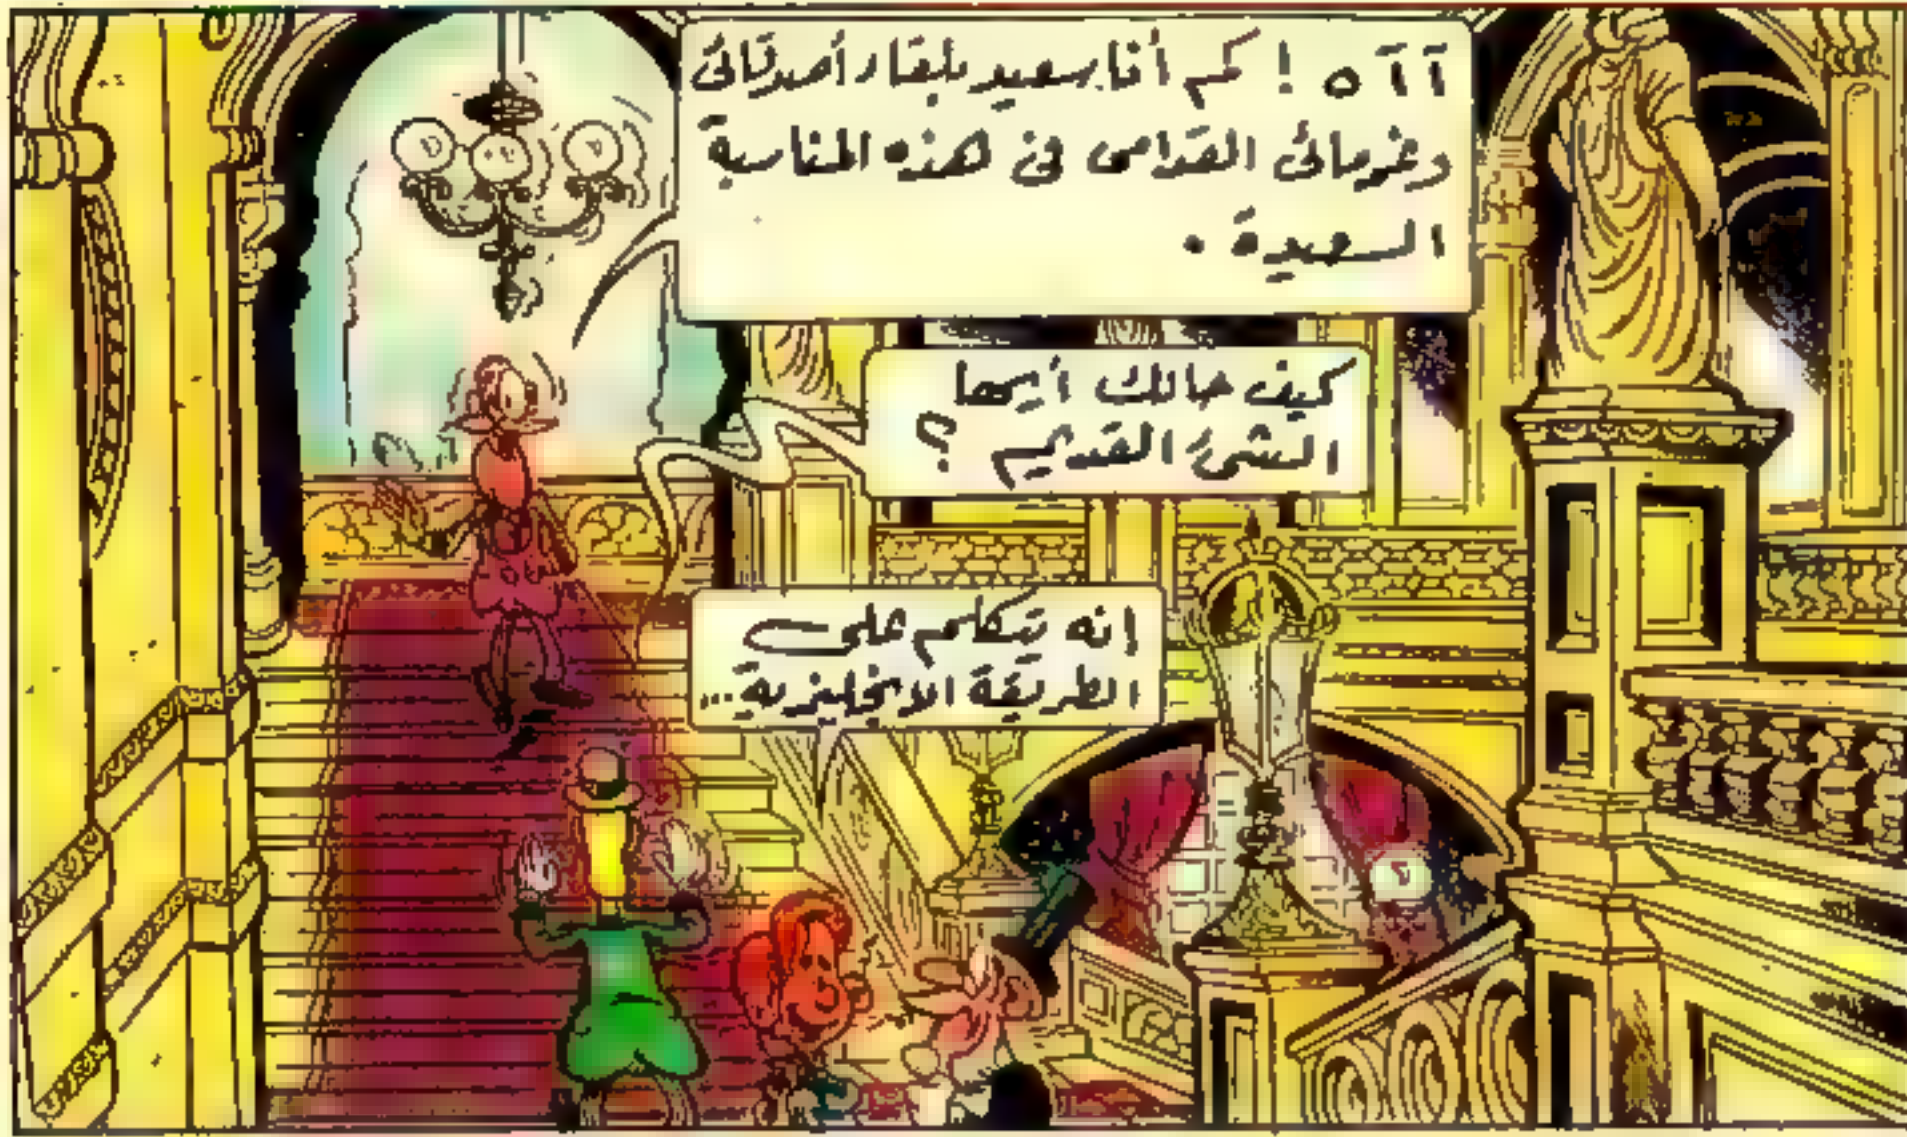 آآه ! كم أنا سعيد بلقاء أصدقائى
وغرمائى القدامى فى هذه المناسبة
السعيدة .
كيف حالك أيها
الشىء القديم ؟
إنه يتكلم على
الطريقة الانجليزية...